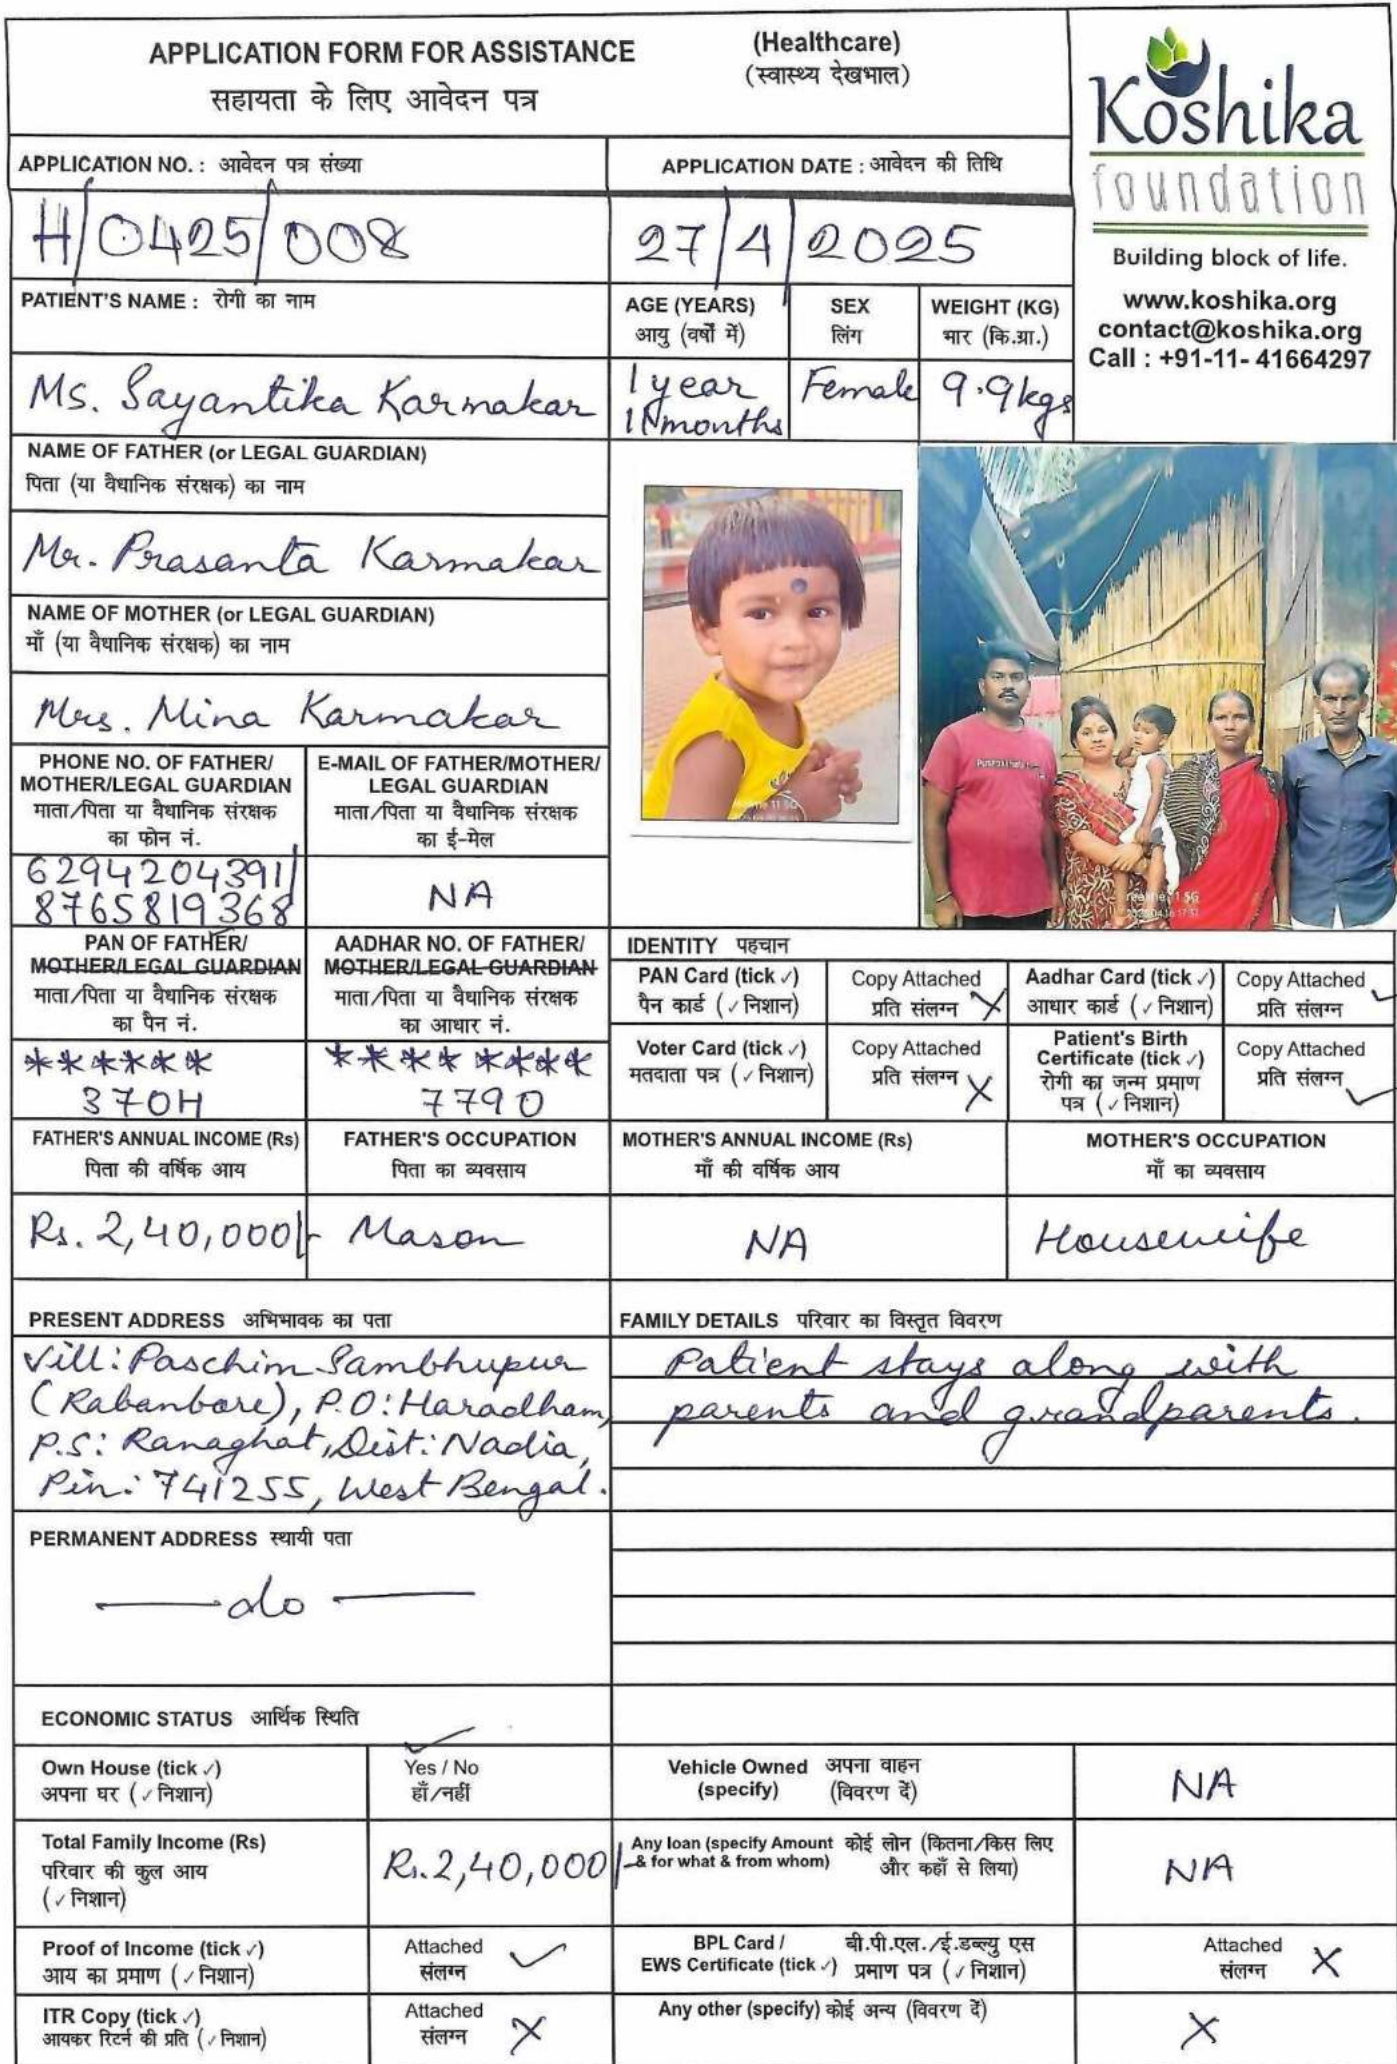 APPLICATION FORM FOR ASSISTANCE
(Healthcare)
सहायता के लिए आवेदन पत्र
(स्वास्थ्य देखभाल)
Koshika
foundation
Building block of life.
www.koshika.org
contact@koshika.org
Call : +91-11- 41664297
APPLICATION NO. : आवेदन पत्र संख्या
APPLICATION DATE : आवेदन की तिथि
H/0425/008
27/4/2025
PATIENT'S NAME : रोगी का नाम
AGE (YEARS)
आयु (वर्षों में)
SEX
लिंग
WEIGHT (KG)
भार (कि.ग्रा.)
Ms. Sayantika Karmakar
1 year
months
Female
9.9kgs
NAME OF FATHER (or LEGAL GUARDIAN)
पिता (या वैधानिक संरक्षक) का नाम
Mr. Prasanta Karmakar
NAME OF MOTHER (or LEGAL GUARDIAN)
माँ (या वैधानिक संरक्षक) का नाम
Mrs. Mina Karmakar
PHONE NO. OF FATHER/
MOTHER/LEGAL GUARDIAN
माता/पिता या वैधानिक संरक्षक
का फोन नं.
E-MAIL OF FATHER/MOTHER/
LEGAL GUARDIAN
माता/पिता या वैधानिक संरक्षक
का ई-मेल
6294204391/
8765819368
NA
PAN OF FATHER/
MOTHER/LEGAL GUARDIAN
माता/पिता या वैधानिक संरक्षक
का पैन नं.
AADHAR NO. OF FATHER/
MOTHER/LEGAL GUARDIAN
माता/पिता या वैधानिक संरक्षक
का आधार नं.
******
370H
**** ****
7790
IDENTITY पहचान
PAN Card (tick ✓)
पैन कार्ड (✓ निशान)
Copy Attached
प्रति संलग्न X
Aadhar Card (tick ✓)
आधार कार्ड (✓ निशान)
Copy Attached
प्रति संलग्न ✓
Voter Card (tick ✓)
मतदाता पत्र (✓ निशान)
Copy Attached
प्रति संलग्न X
Patient's Birth
Certificate (tick ✓)
रोगी का जन्म प्रमाण
पत्र (✓ निशान)
Copy Attached
प्रति संलग्न ✓
FATHER'S ANNUAL INCOME (Rs)
पिता की वर्षिक आय
FATHER'S OCCUPATION
पिता का व्यवसाय
MOTHER'S ANNUAL INCOME (Rs)
माँ की वर्षिक आय
MOTHER'S OCCUPATION
माँ का व्यवसाय
Rs. 2,40,000/-
Mason
NA
Housewife
PRESENT ADDRESS अभिभावक का पता
Vill: Paschim Sambhupur
(Rabanbore), P.O: Haradham,
P.S: Ranaghat, Dist: Nadia,
Pin: 741255, West Bengal.
FAMILY DETAILS परिवार का विस्तृत विवरण
Patient stays along with
parents and grandparents.
PERMANENT ADDRESS स्थायी पता
—do—
ECONOMIC STATUS आर्थिक स्थिति
Own House (tick ✓)
अपना घर (✓ निशान)
✓
Yes / No
हाँ/नहीं
Vehicle Owned अपना वाहन
(specify) (विवरण दें)
NA
Total Family Income (Rs)
परिवार की कुल आय
(✓ निशान)
Rs.2,40,000/-
Any loan (specify Amount कोई लोन (कितना/किस लिए
& for what & from whom) और कहाँ से लिया)
NA
Proof of Income (tick ✓)
आय का प्रमाण (✓ निशान)
Attached
संलग्न ✓
BPL Card / बी.पी.एल./ई.डब्ल्यु एस
EWS Certificate (tick ✓) प्रमाण पत्र (✓ निशान)
Attached
संलग्न X
ITR Copy (tick ✓)
आयकर रिटर्न की प्रति (✓ निशान)
Attached
संलग्न X
Any other (specify) कोई अन्य (विवरण दें)
X